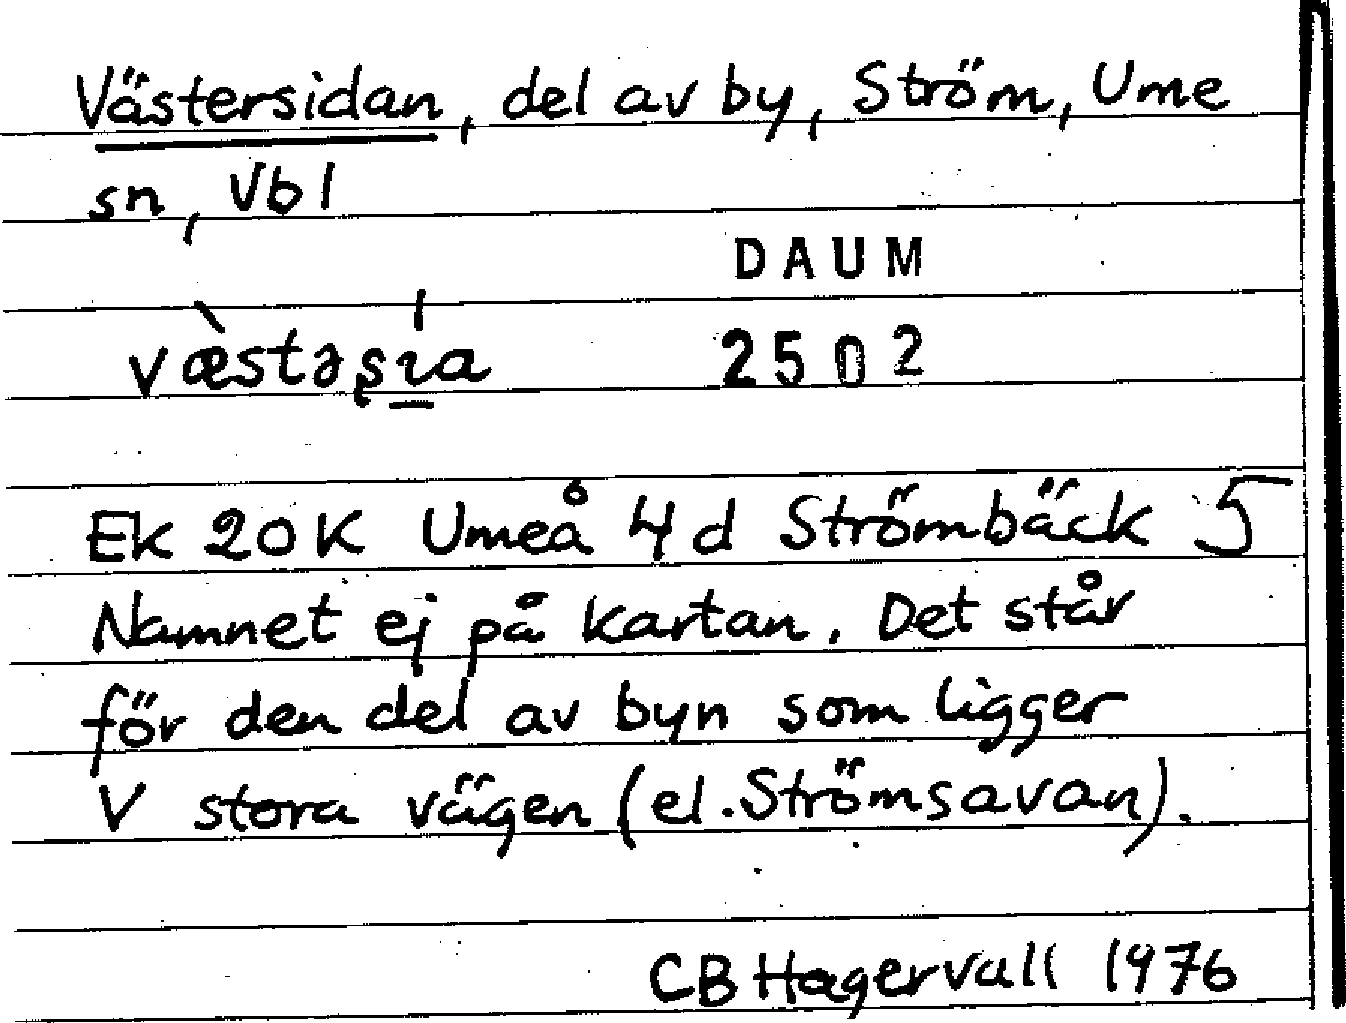 Västersidan, del av by, Ström, Ume
sn, Vbl
DAUM
væ̀stəʂı̲a
2502
Ek 20K Umeå 4d Strömbäck 5
Namnet ej på kartan. Det står
för den del av byn som ligger
V stora vägen (el. Strömsavan).
CB Hagervall 1976